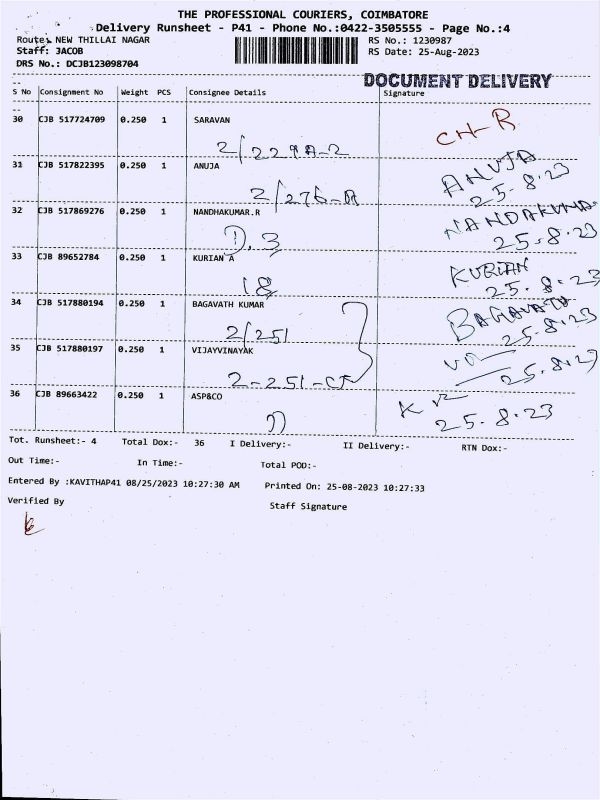 THE PROFESSIONAL COURIERS, COIMBATORE
Delivery Runsheet - P41 - Phone No.:0422-3505555 - Page No.:4
Route: NEW THILLAI NAGAR RS No.: 1230987
Staff: JACOB RS Date: 25-Aug-2023
DRS No.: DCJB123098704
DOCUMENT DELIVERY
S No Consignment No Weight PCS Consignee Details Signature
30 CJB 517724709 0.250 1 SARAVAN CH-R
2/229A-2
31 CJB 517822395 0.250 1 ANUJA ANUJA
2/276-A 25-8-23
32 CJB 517869276 0.250 1 NANDHAKUMAR.R
D.3 25-8-23
33 CJB 89652784 0.250 1 KURIAN A KURIAN
18 25-8-23
34 CJB 517880194 0.250 1 BAGAVATH KUMAR
2/251 25.8.23
35 CJB 517880197 0.250 1 VIJAYVINAYAK
25.8.23
36 CJB 89663422 0.250 1 ASP&CO
25.8.23
Tot. Runsheet:- 4 Total Dox:- 36 I Delivery:- II Delivery:- RTN Dox:-
Out Time:- In Time:- Total POD:-
Entered By :KAVITHAP41 08/25/2023 10:27:30 AM Printed On: 25-08-2023 10:27:33
Verified By Staff Signature